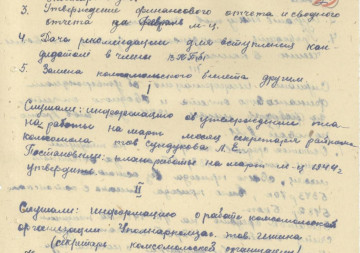 3. Утверждении финансового отчета и сводного
отчета за февраль м-ц.
4. Дача рекомендации для вступления кан
дидатом в члены ВКП(б)
5. Замена комсомольского билета другим.
I
Слушали: информацию об утверждении пла
на работы на март месяц секретарь райкома
комсомола тов Сундукова Л. Е.
Постановили: план работы на март м-ц 1944г
утвердить.
II
Слушали: информацию о работе комсомольской
организации тов.
(секретарь комсомольской организации)